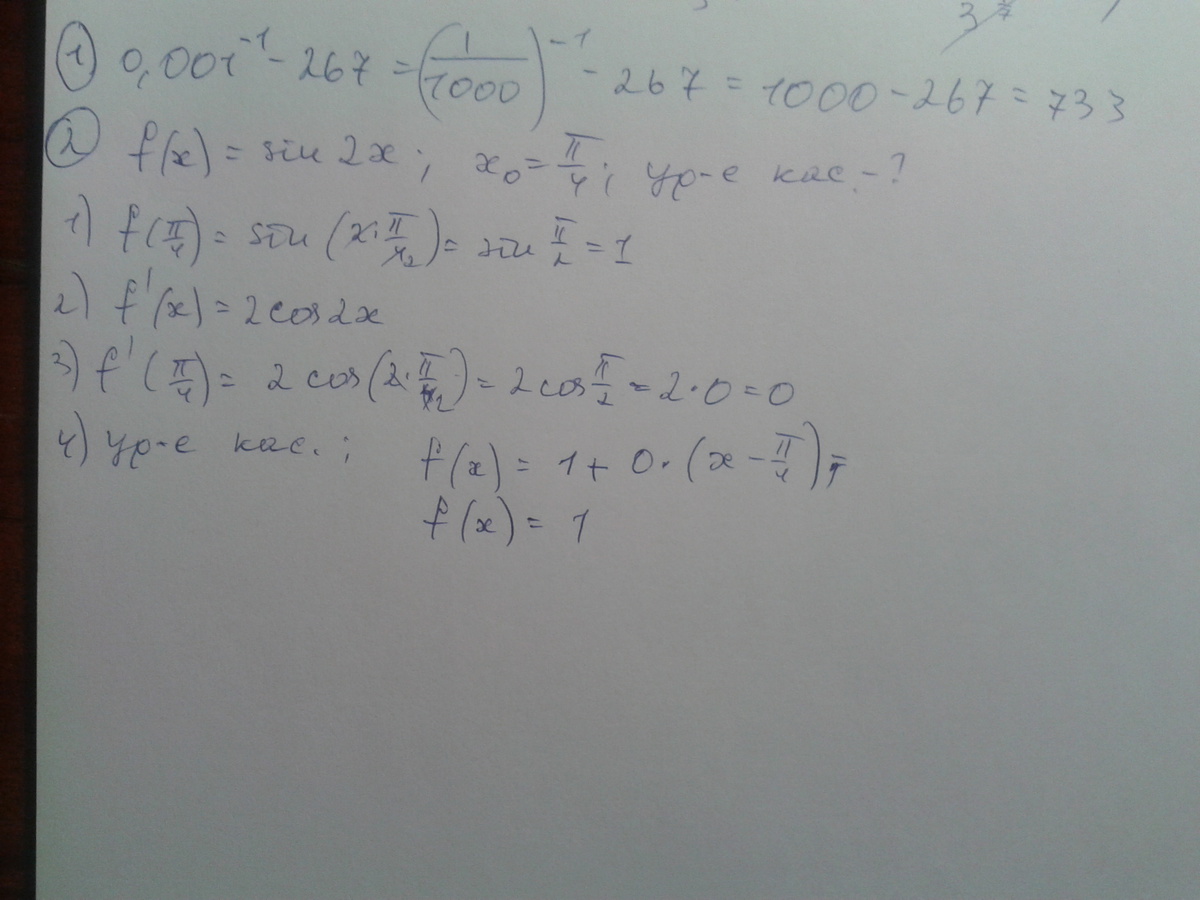 3 7
① 0,001⁻¹ - 267 = (1/1000)⁻¹ - 267 = 1000 - 267 = 733
② f(x) = sin 2x; x₀ = π/4; ур-е кас. - ?
1) f(π/4) = sin (2·π/4₂) = sin π/2 = 1
2) f'(x) = 2cos2x
3) f'(π/4) = 2 cos(2·π/4₂) = 2cos π/2 = 2·0 = 0
4) ур-е кас.; f(x) = 1 + 0·(x - π/4);
f(x) = 1